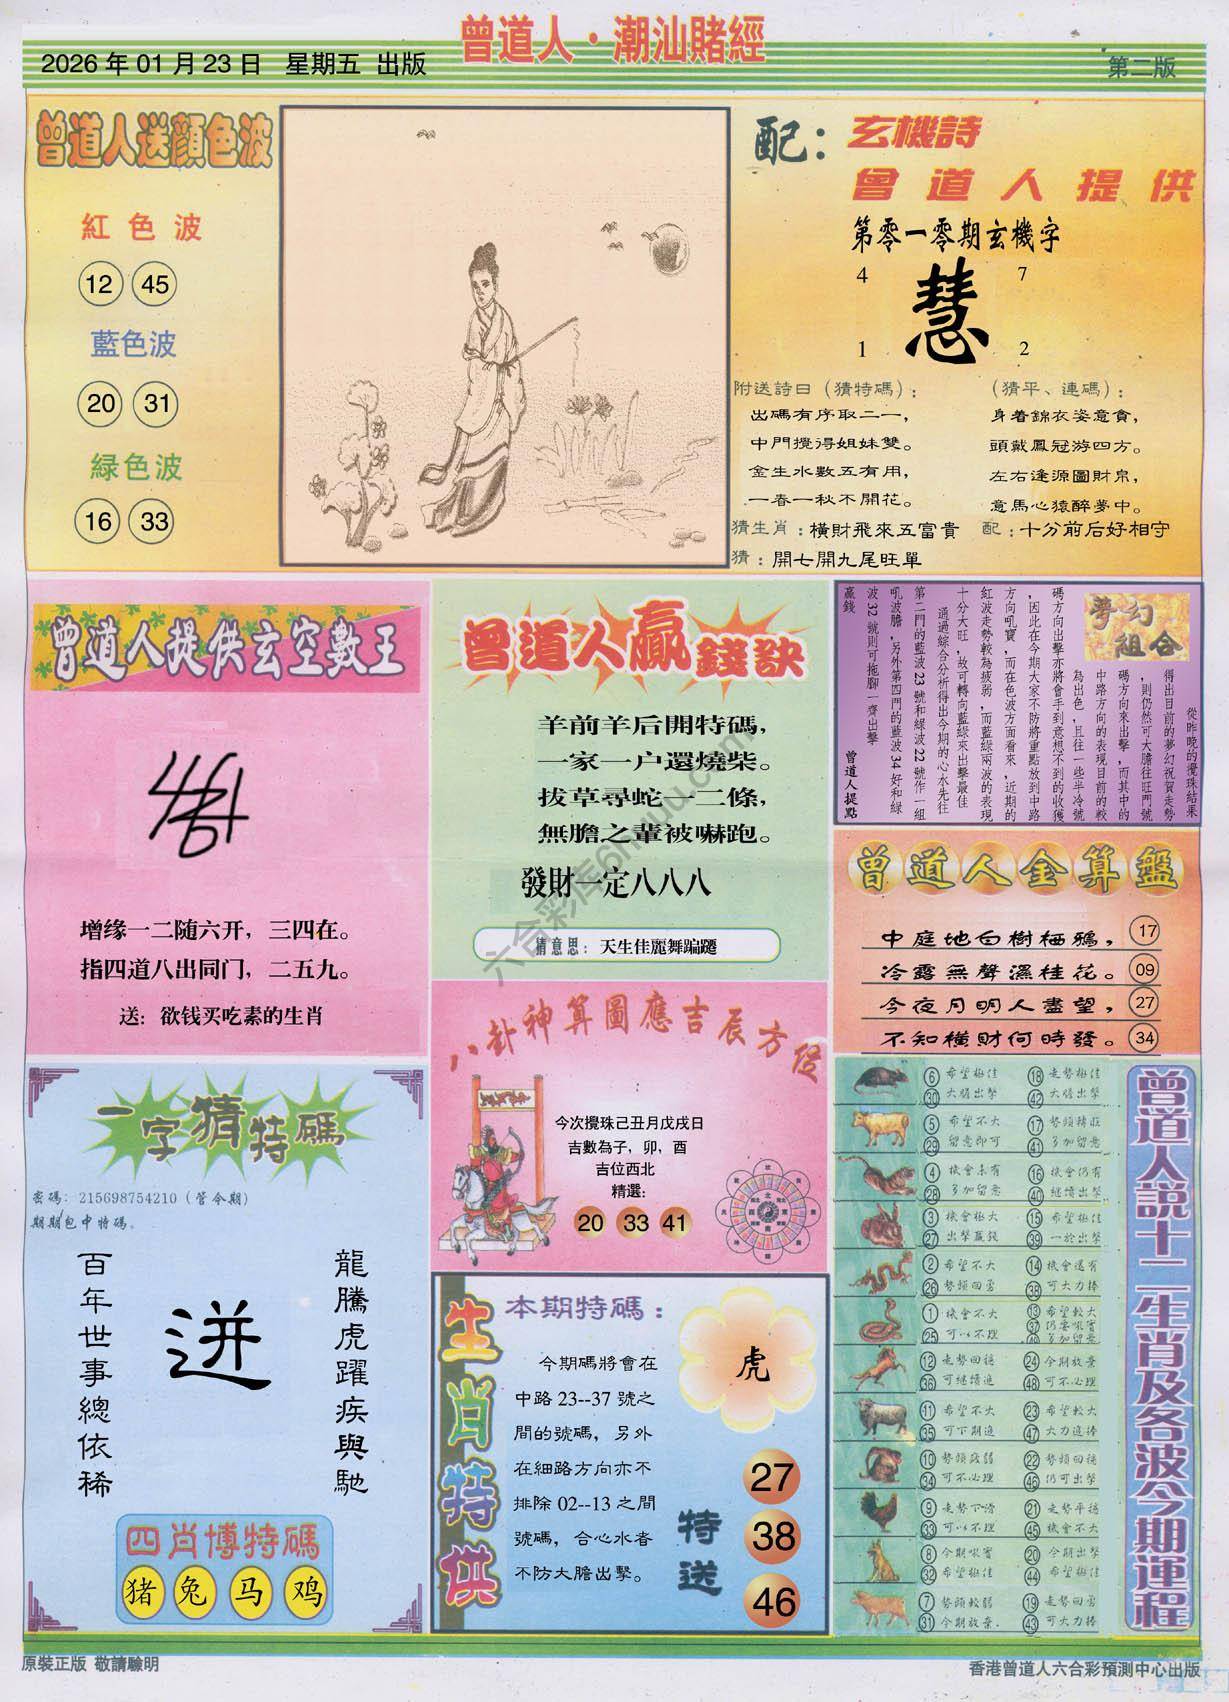 曾道人·潮汕賭經
2026 年 01 月 23 日 星期五 出版
第二版
曾道人送顏色波
紅色波
12 45
藍色波
20 31
緑色波
16 33
配：玄機詩
曾道人提供
第零一零期玄機字
4 7
慧
1 2
附送詩曰（猜特碼）：
出碼有序取二一，
中門攪得姐妹雙。
金生水數五有用，
一春一秋不開花。
（猜平、連碼）：
身着錦衣姿意貪，
頭戴鳳冠游四方。
左右逢源圖財帛，
意馬心猿醉夢中。
猜生肖：橫財飛來五富貴
配：十分前后好相守
猜：開七開九尾旺單
曾道人提供玄空數王
增缘一二随六开，三四在。
指四道八出同门，二五九。
送：欲钱买吃素的生肖
曾道人贏錢訣
羊前羊后開特碼，
一家一户還燒柴。
拔草尋蛇一二條，
無膽之輩被嚇跑。
發財一定八八八
猜意思：天生佳麗舞蹁躚
夢幻組合
從昨晚的攪珠結果
得出目前的夢幻祝賀走勢
，則仍然可大膽往旺門號
碼方向來出擊，而其中的
中路方向的表現目前的較
為出色，且往一些半冷號
碼方向出擊亦將會手到意想不到的收獲
，因此在今期大家不防將重點放到中路
方向吼寶，而在色波方面看來，近期的
紅波走勢較為疲弱，而藍綠兩波的表現
十分大旺，故可轉向藍綠來出擊最佳
通過綜合分析得出今期的心水先往
第二門的藍波 23 號和綠波 22 號作一組
吼波膽，另外第四門的藍波 34 好和綠
波 32 號則可拖腳一齊出擊
贏錢
曾道人提點
曾道人金算盤
中庭地白樹栖鴉， 17
冷露無聲濕桂花。 09
今夜月明人盡望， 27
不知橫財何時發。 34
一字猜特碼
密碼：215698754210（管今期）
期期包中特碼。
百年世事總依稀
迸
龍騰虎躍疾與馳
四肖博特碼
猪 兔 马 鸡
八卦神算圖應吉辰方位
今次攪珠己丑月戊戌日
吉數為子，卯，酉
吉位西北
精選：
20 33 41
生肖特供
本期特碼：
虎
今期碼將會在
中路 23--37 號之
間的號碼，另外
在細路方向亦不
排除 02--13 之間
號碼，合心水者
不防大膽出擊。
特送
27
38
46
曾道人說十二生肖及各波今期運程
6 希望極佳 18 走勢極佳
30 大膽出擊 42 大膽出擊
5 希望不大 17 勢頭轉旺
29 留意即可 41 多加留意
4 機會未有 16 機會仍有
28 多加留意 40 繼續出擊
3 機會極大 15 希望極佳
27 出擊贏錢 39 一於出擊
2 希望不大 14 機會還有
26 勢頭回勇 38 可大力捧
1 機會不大 13 希望較大
25 可以不理 37 仍要吼實
多加留意
12 走勢回穩 24 今期放棄
36 可繼續追 48 可不必理
11 希望不大 23 希望較大
35 可下期追 47 大力追捧
10 勢頭疲弱 22 勢頭回穩
34 可不必理 46 仍可出擊
9 走勢下滑 21 走勢平穩
33 可以不理 45 機會不大
8 今期吼實 20 今期出擊
32 希望極佳 44 希望極佳
7 勢頭較弱 19 走勢回勇
31 今期放棄. 43 可大力捧
六合彩库6huu.com
原裝正版 敬請驗明
香港曾道人六合彩預測中心出版